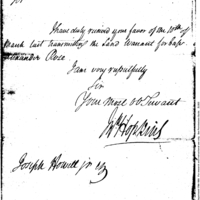 Sir
I have duly received your favor of the 10th of
March last transmitting the Land Warrant for Capt
Alexander Rose.
I am very respectfully
Sir
Your most ob Servant
Wm Hopkins
Joseph Howell jr esq